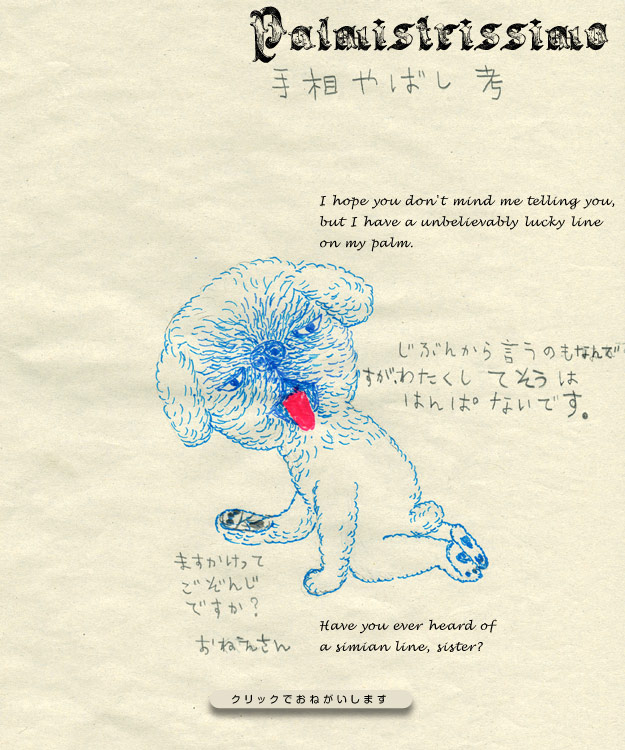 Palmistrissimo
手相やばし考
I hope you don't mind me telling you,
but I have a unbelievably lucky line
on my palm.
じぶんから言うのもなんで
すがわたくし てそうは
はんぱないです。
ますかけって
ごぞんじ
ですか?
おねえさん
Have you ever heard of
a simian line, sister?
クリックでおねがいします